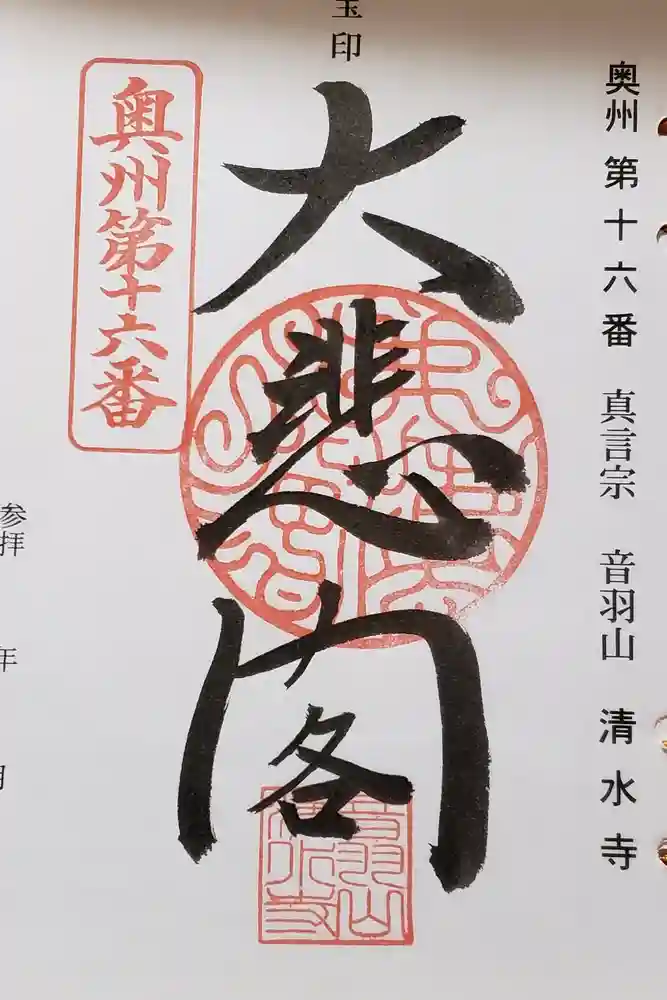 奥州 第十六番 真言宗 音羽山 清水寺
宝印
大悲閣
奥州第十六番
音羽山
清水寺
参拝 年 月